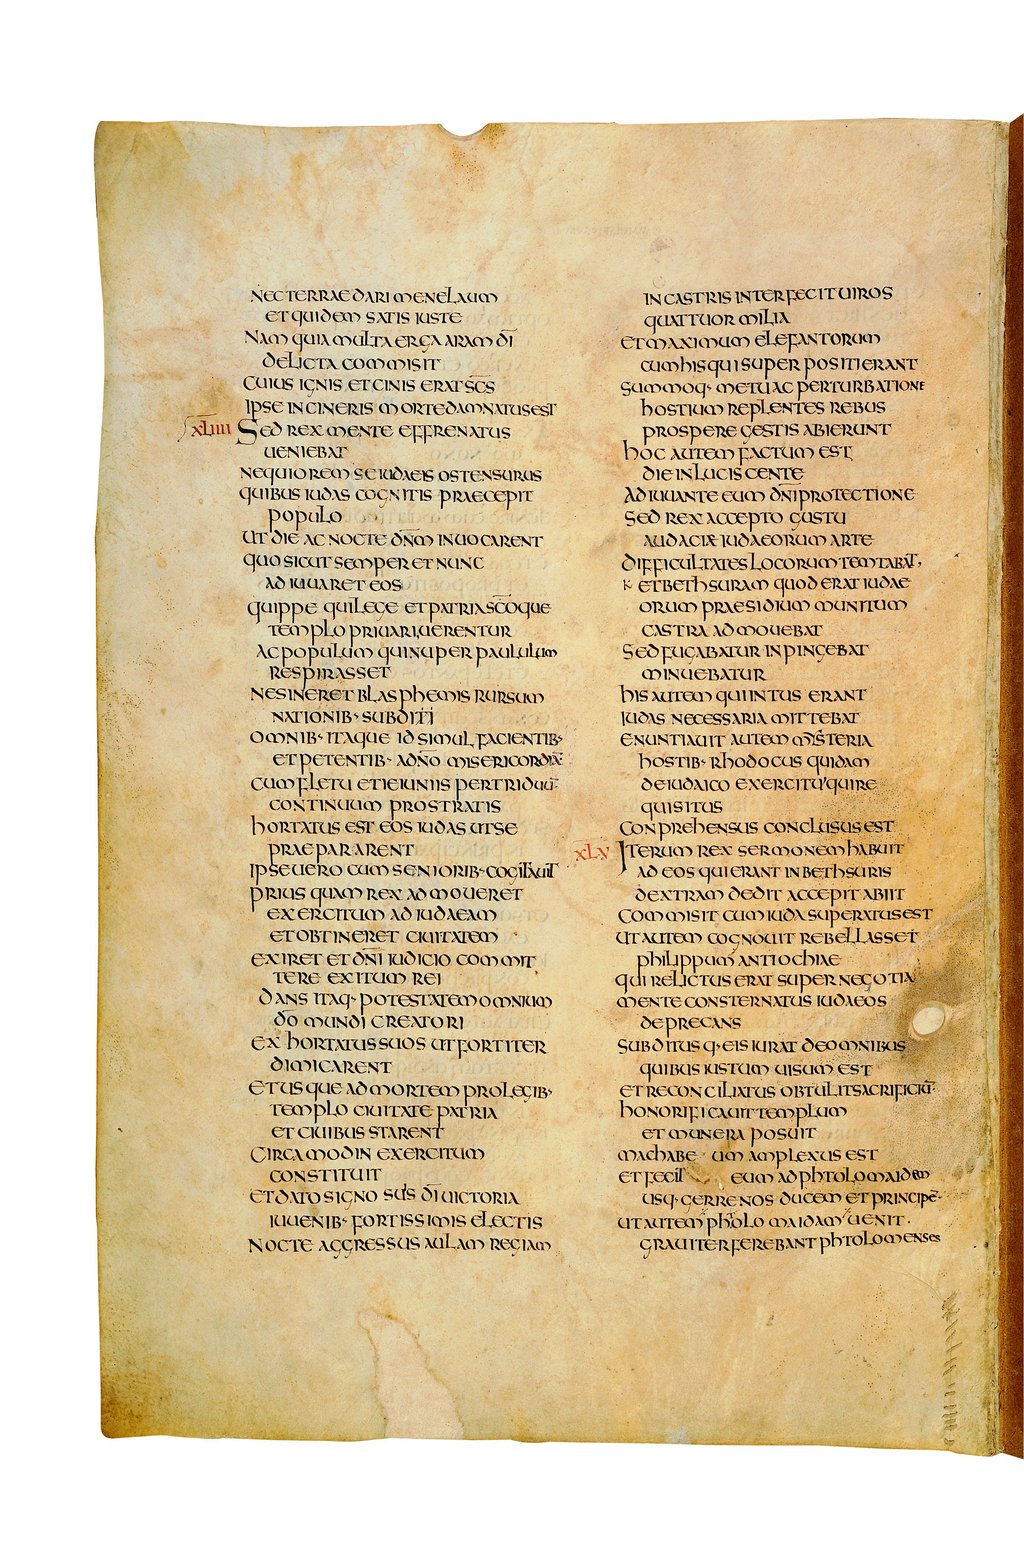 NEC TERRAE DARI MENELAUM
ET QUIDEM SATIS IUSTE
NAM QUIA MULTA ERGA ARAM D̅I
DELICTA COMMISIT
CUIUS IGNIS ET CINIS ERAT SC̅S
IPSE IN CINERIS MORTE DAMNATUS EST
XLIIII SED REX MENTE EFFRENATUS
UENIEBAT
NEQUIOREM SE IUDAEIS OSTENSURUS
QUIBUS IUDAS COGNITIS PRAECEPIT
POPULO
UT DIE AC NOCTE DN̅M INUOCARENT
QUO SICUT SEMPER ET NUNC
ADIUUARET EOS
QUIPPE QUI LEGE ET PATRIA SC̅OQUE
TEMPLO PRIUARI UERENTUR
AC POPULUM QUI NUPER PAULULUM
RESPIRASSET
NE SINERET BLASPHEMIS RURSUM
NATIONIB· SUBDITI
OMNIB· ITAQUE ID SIMUL FACIENTIB·
ET PETENTIB· A DN̅O MISERICORDIA̅
CUM FLETU ET IEIUNIIS PER TRIDUU̅
CONTINUUM PROSTRATIS
HORTATUS EST EOS IUDAS UT SE
PRAEPARARENT
IPSE UERO CUM SENIORIB· COGITAUIT
PRIUS QUAM REX ADMOUERET
EXERCITUM AD IUDAEAM
ET OBTINERET CIUITATEM
EXIRET ET DN̅I IUDICIO COMMIT
TERE EXITUM REI
DANS ITAQ· POTESTATEM OMNIUM
D̅O MUNDI CREATORI
EXHORTATUS SUOS UT FORTITER
DIMICARENT
ET USQUE AD MORTEM PRO LEGIB·
TEMPLO CIUITATE PATRIA
ET CIUIBUS STARENT
CIRCA MODIN EXERCITUM
CONSTITUIT
ET DATO SIGNO SUIS D̅I UICTORIA
IUUENIB· FORTISSIMIS ELECTIS
NOCTE AGGRESSUS AULAM REGIAM
IN CASTRIS INTERFECIT UIROS
QUATTUOR MILIA
ET MAXIMUM ELEFANTORUM
CUM HIS QUI SUPERPOSITI ERANT
SUMMOQ· METU AC PERTURBATIONE
HOSTIUM REPLENTES REBUS
PROSPERE GESTIS ABIERUNT
HOC AUTEM FACTUM EST
DIE INLUCISCENTE
ADIUUANTE EUM DN̅I PROTECTIONE
SED REX ACCEPTO GUSTU
AUDACIÆ IUDAEORUM ARTE
DIFFICULTATES LOCORUM TEMTABAT,
ET BETHSURAM QUOD ERAT IUDAE
ORUM PRAESIDIUM MUNITUM
CASTRA ADMOUEBAT
SED FUGABATUR INPINGEBAT
MINUEBATUR
HIS AUTEM QUI INTUS ERANT
IUDAS NECESSARIA MITTEBAT
ENUNTIAUIT AUTEM MISTERIA
HOSTIB· RHODOCUS QUIDAM
DE IUDAICO EXERCITU QUI RE
QUISITUS
CONPREHENSUS CONCLUSUS EST
XLV ITERUM REX SERMONEM HABUIT
AD EOS QUI ERANT IN BETHSURIS
DEXTRAM DEDIT ACCEPIT ABIIT
COMMISIT CUM IUDA SUPERATUS EST
UT AUTEM COGNOUIT REBELLASSET
PHILIPPUM ANTIOCHIAE
QUI RELICTUS ERAT SUPER NEGOTIA
MENTE CONSTERNATUS IUDAEOS
DEPRECANS
SUBDITUSQ· EIS IURAT DE OMNIBUS
QUIBUS IUSTUM UISUM EST
ET RECONCILIATUS OBTULIT SACRIFICIU̅
HONORIFICAUIT TEMPLUM
ET MUNERA POSUIT
MACHABE UM AMPLEXUS EST
ET FECIT EUM AD PHTOLOMAIDEM
USQ· GERRENOS DUCEM ET PRINCIPE̅·
UT AUTEM PHTOLOMAIDAM UENIT·
GRAUITER FEREBANT PHTOLOMENSES